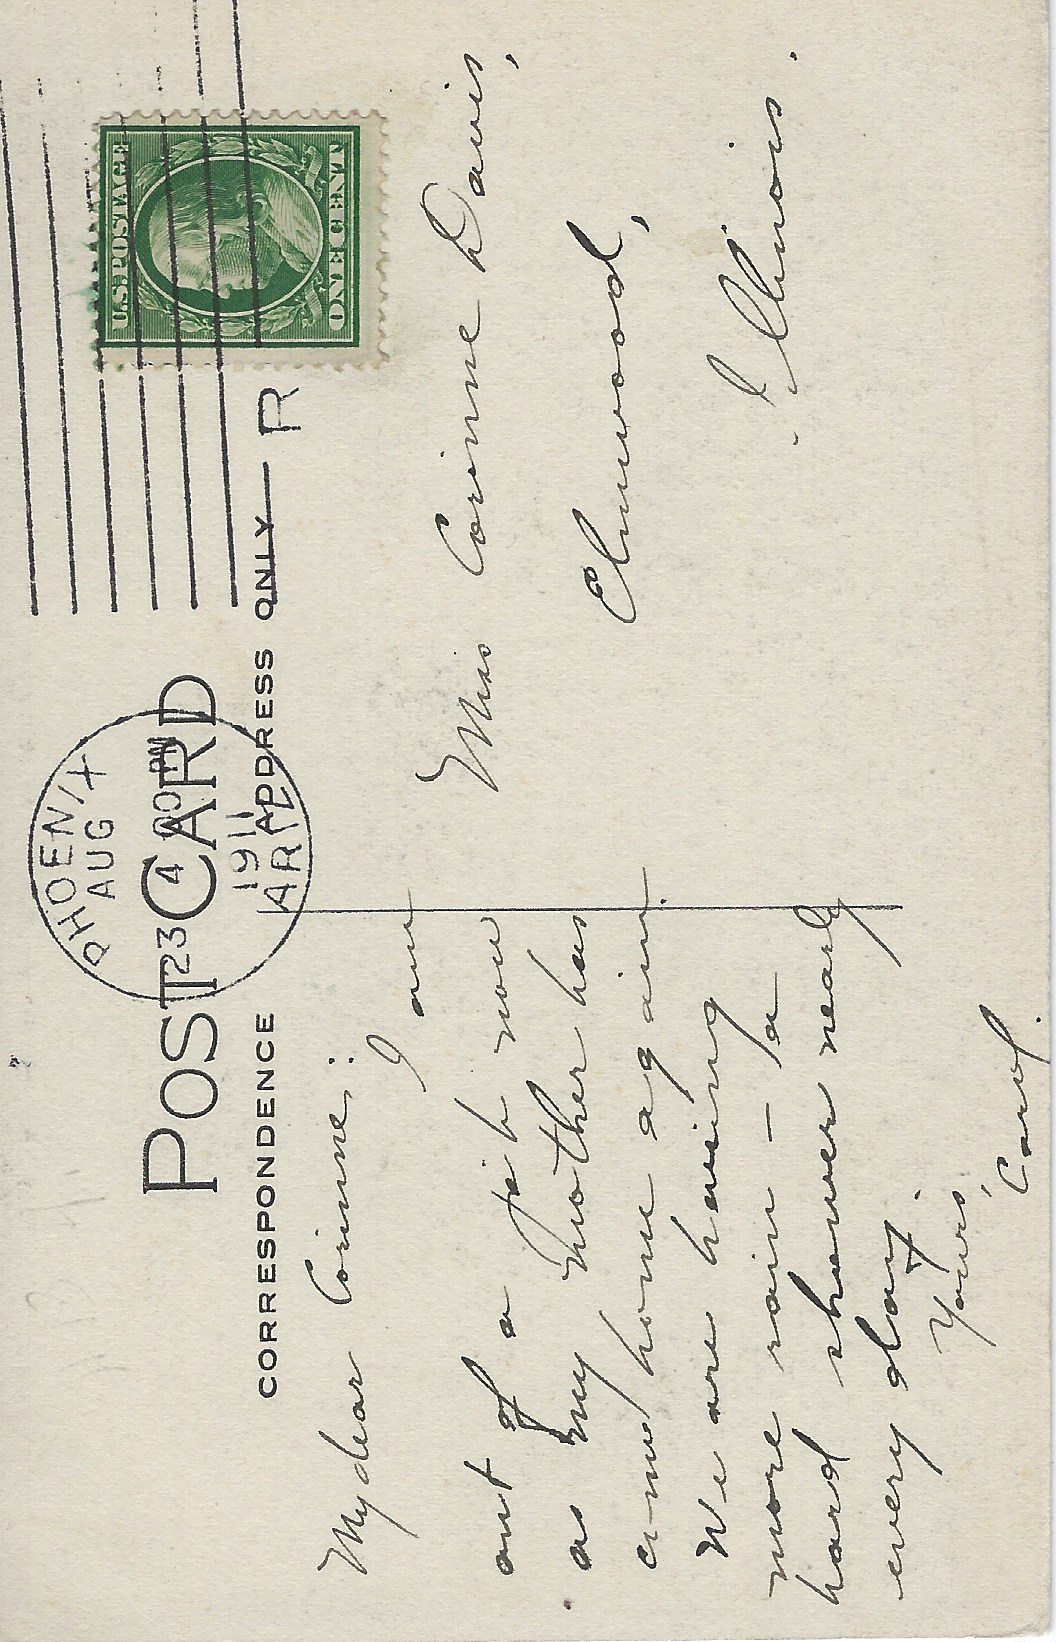 POST CARD
CORRESPONDENCE
ADDRESS ONLY
PHOENIX
AUG
23 4 00 PM
1911
ARIZ
R
U.S. POSTAGE
ONE CENT
My dear Corinne:
I am
out of a job now
as my Mother has
come home again.
We are having
more rain - a
hard shower nearly
every day.
Yours,
Carol.
Miss Corinne Davis,
Elmwood,
Illinois.